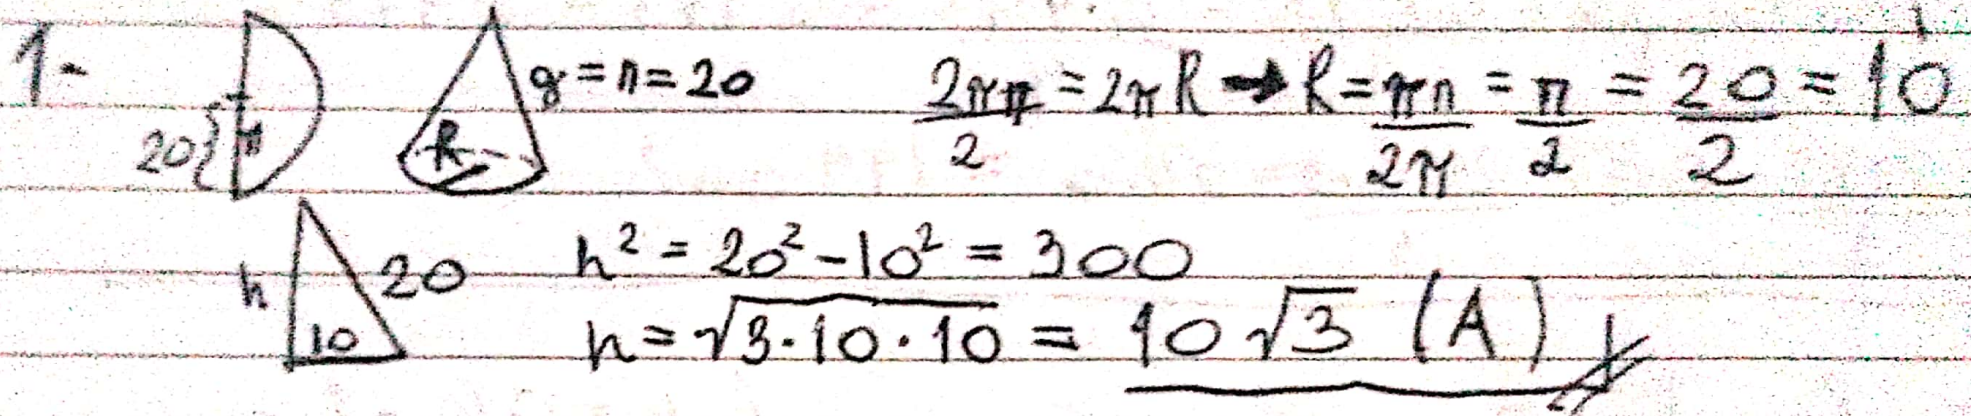 1- 20{ r R g = r = 20 2πr/2 = 2πR → R = πr/2π = r/2 = 20/2 = 10
h 20 10 h² = 20² - 10² = 300
h = √3·10·10 = 10√3 (A)